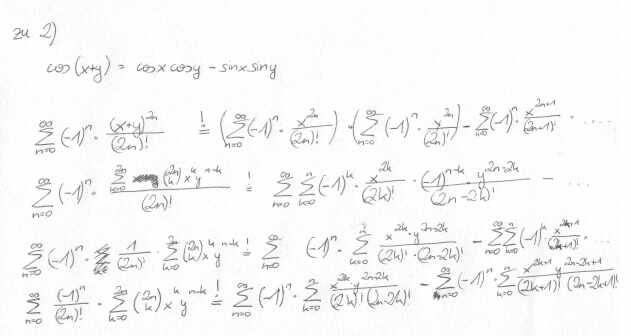 zu 2)
cos (x+y) = cosx cosy - sinx siny
∑_{n=0}^{∞} (-1)^n · (x+y)^{2n}/(2n)! =! (∑_{n=0}^{∞} (-1)^n · x^{2n}/(2n)!) · (∑_{n=0}^{∞} (-1)^n · x^{2n}/(2n)!) - ∑_{n=0}^{∞} (-1)^n · x^{2n+1}/(2n+1)! · ....
∑_{n=0}^{∞} (-1)^n · ∑_{k=0}^{2n} (2n k) x^k y^{n-k}/(2n)! =! ∑_{n=0}^{∞} ∑_{k=0}^{n} (-1)^k · x^{2k}/(2k)! · (-1)^{n-k} · y^{2n-2k}/(2n-2k)! - ...
∑_{n=0}^{∞} (-1)^n · 1/(2n)! · ∑_{k=0}^{2n} (2n k) x^k y^{n-k} =! ∑_{n=0}^{∞} (-1)^n · ∑_{k=0}^{n} x^{2k} · y^{2n-2k}/(2k)! · (2n-2k)! - ∑_{n=0}^{∞} ∑_{k=0}^{n} (-1)^k · x^{2k+1}/(2k+1)! · ...
∑_{n=0}^{∞} (-1)^n/(2n)! · ∑_{k=0}^{2n} (2n k) x^k y^{n-k} =! ∑_{n=0}^{∞} (-1)^n · ∑_{k=0}^{n} x^{2k} y^{2n-2k}/(2k)! (2n-2k)! - ∑_{n=0}^{∞} (-1)^n · ∑_{k=0}^{n} x^{2k+1} y^{2n-2k+1}/(2k+1)! (2n-2k+1)!